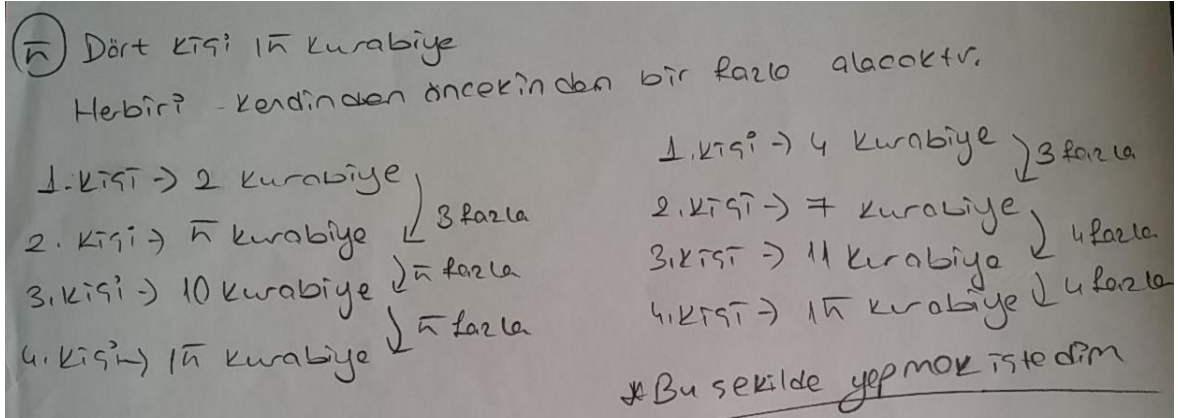 5 Dört kişi 15 kurabiye
Herbiri kendinden öncekinden bir fazla alacaktır.
1. kişi → 2 kurabiye
3 fazla
2. kişi → 5 kurabiye
5 fazla
3. kişi → 10 kurabiye
5 fazla
4. kişi → 15 kurabiye
1. kişi → 4 kurabiye
3 fazla
2. kişi → 7 kurabiye
4 fazla
3. kişi → 11 kurabiye
4 fazla
4. kişi → 15 kurabiye
* Bu sekilde yapmak istedim